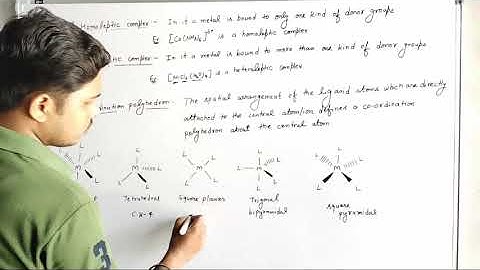 Homoleptic complex - In it a metal is bound to only one kind of donor groups
Eg [Co(NH3)6]3+ is a homoleptic complex
complex - In it a metal is bound to more than one kind of donor groups
is a heteroleptic complex
polyhedron - The spatial arrangement of the ligand atoms which are directly
attached to the central atom/ion defines a co-ordination
polyhedron about the central atom
L L L L L L L L
M M M M M
L L L L L L L L L L
Tetrahedral Square planar Trigonal bipyramidal Square pyramidal
C.N-4